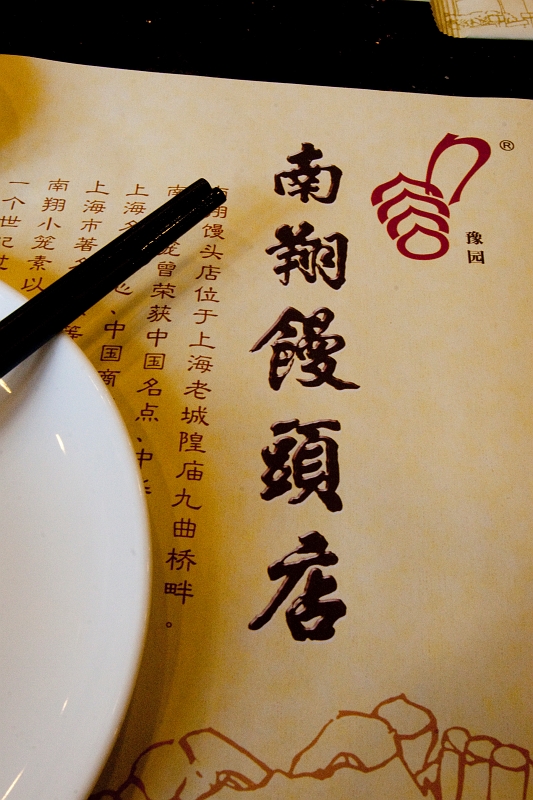 ®
豫园
南翔饅頭店
南翔馒头店位于上海老城隍庙九曲桥畔。
南笼曾荣获中国名点、中
上海名、中国商
上海市著名
南翔小笼素以
一个世纪